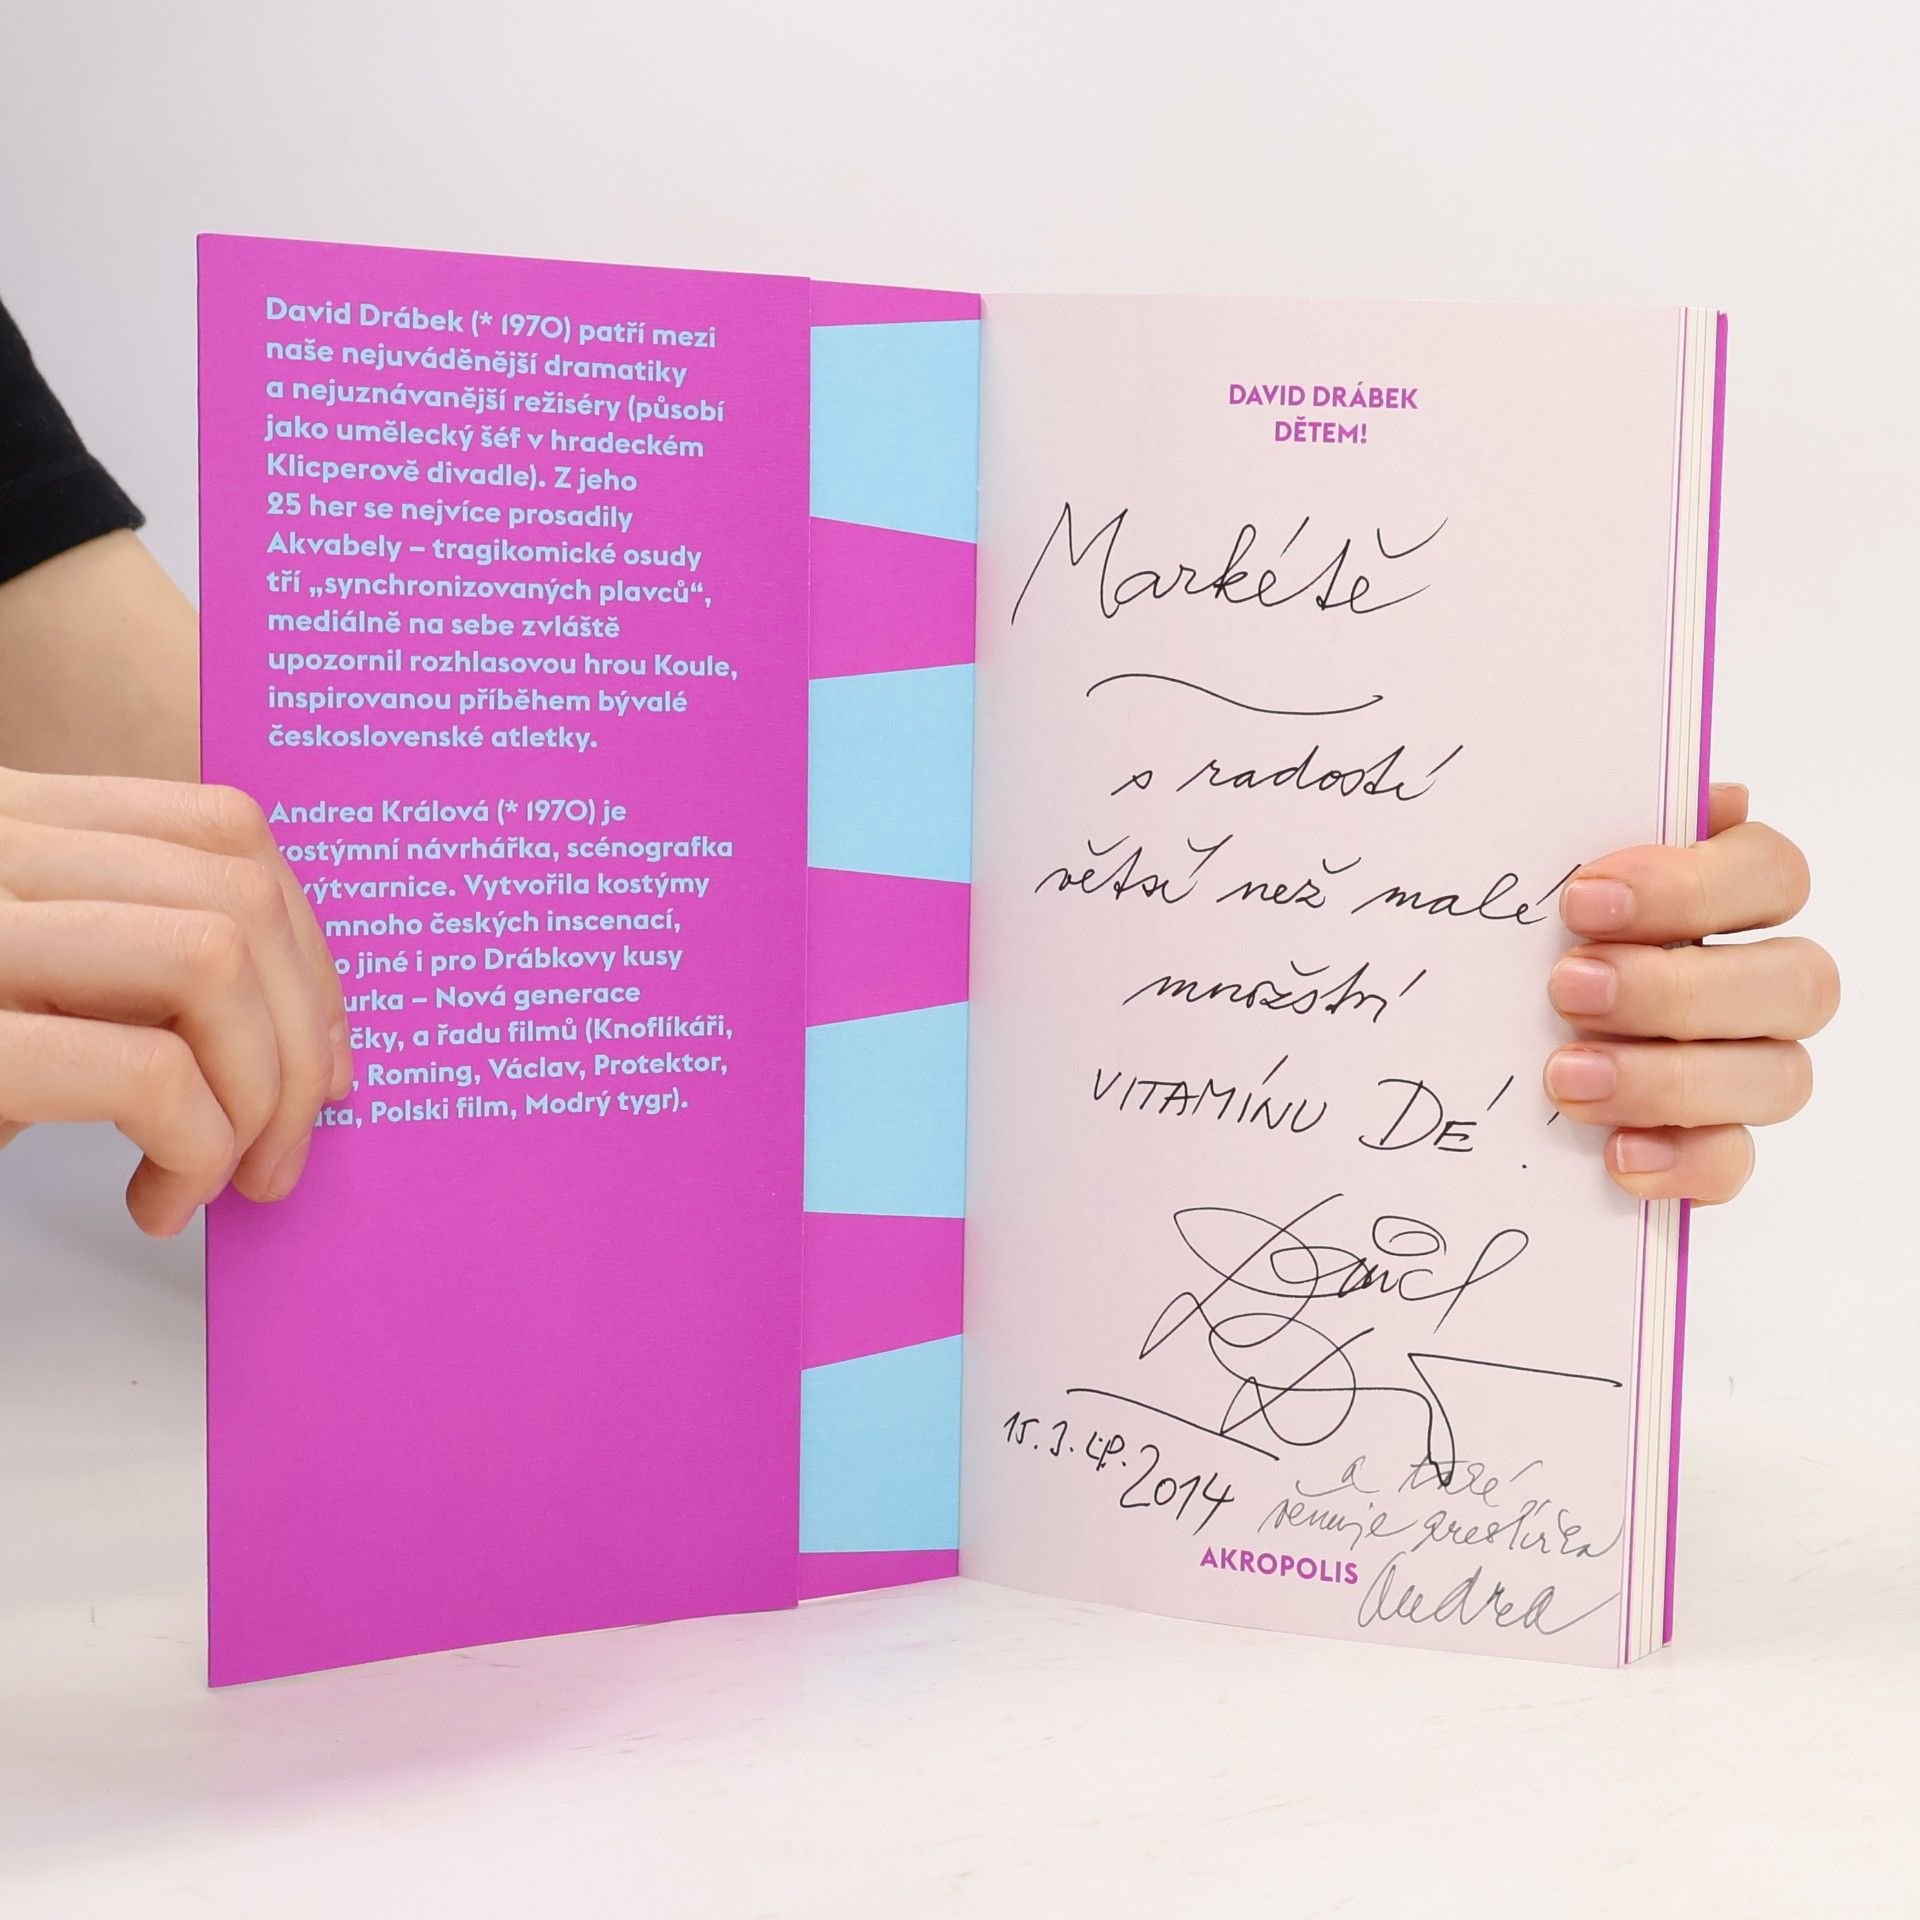 David Drábek (* 1970) patří mezi
naše nejuváděnější dramatiky
a nejuznávanější režiséry (působí
jako umělecký šéf v hradeckém
Klicperově divadle). Z jeho
25 her se nejvíce prosadily
Akvabely – tragikomické osudy
tří „synchronizovaných plavců“,
mediálně na sebe zvláště
upozornil rozhlasovou hrou Koule,
inspirovanou příběhem bývalé
československé atletky.
Andrea Králová (* 1970) je
ostýmní návrhářka, scénografka
výtvarnice. Vytvořila kostýmy
mnoho českých inscenací,
o jiné i pro Drábkovy kusy
urka – Nová generace
čky, a řadu filmů (Knoflíkáři,
, Roming, Václav, Protektor,
uta, Polski film, Modrý tygr).
DAVID DRÁBEK
DĚTEM!
Markétě
s radostí
větší než malé
množství
VITAMÍNU DÉ!
David
15. 3. LP. 2014
a také
věnuje
AKROPOLIS
Andrea